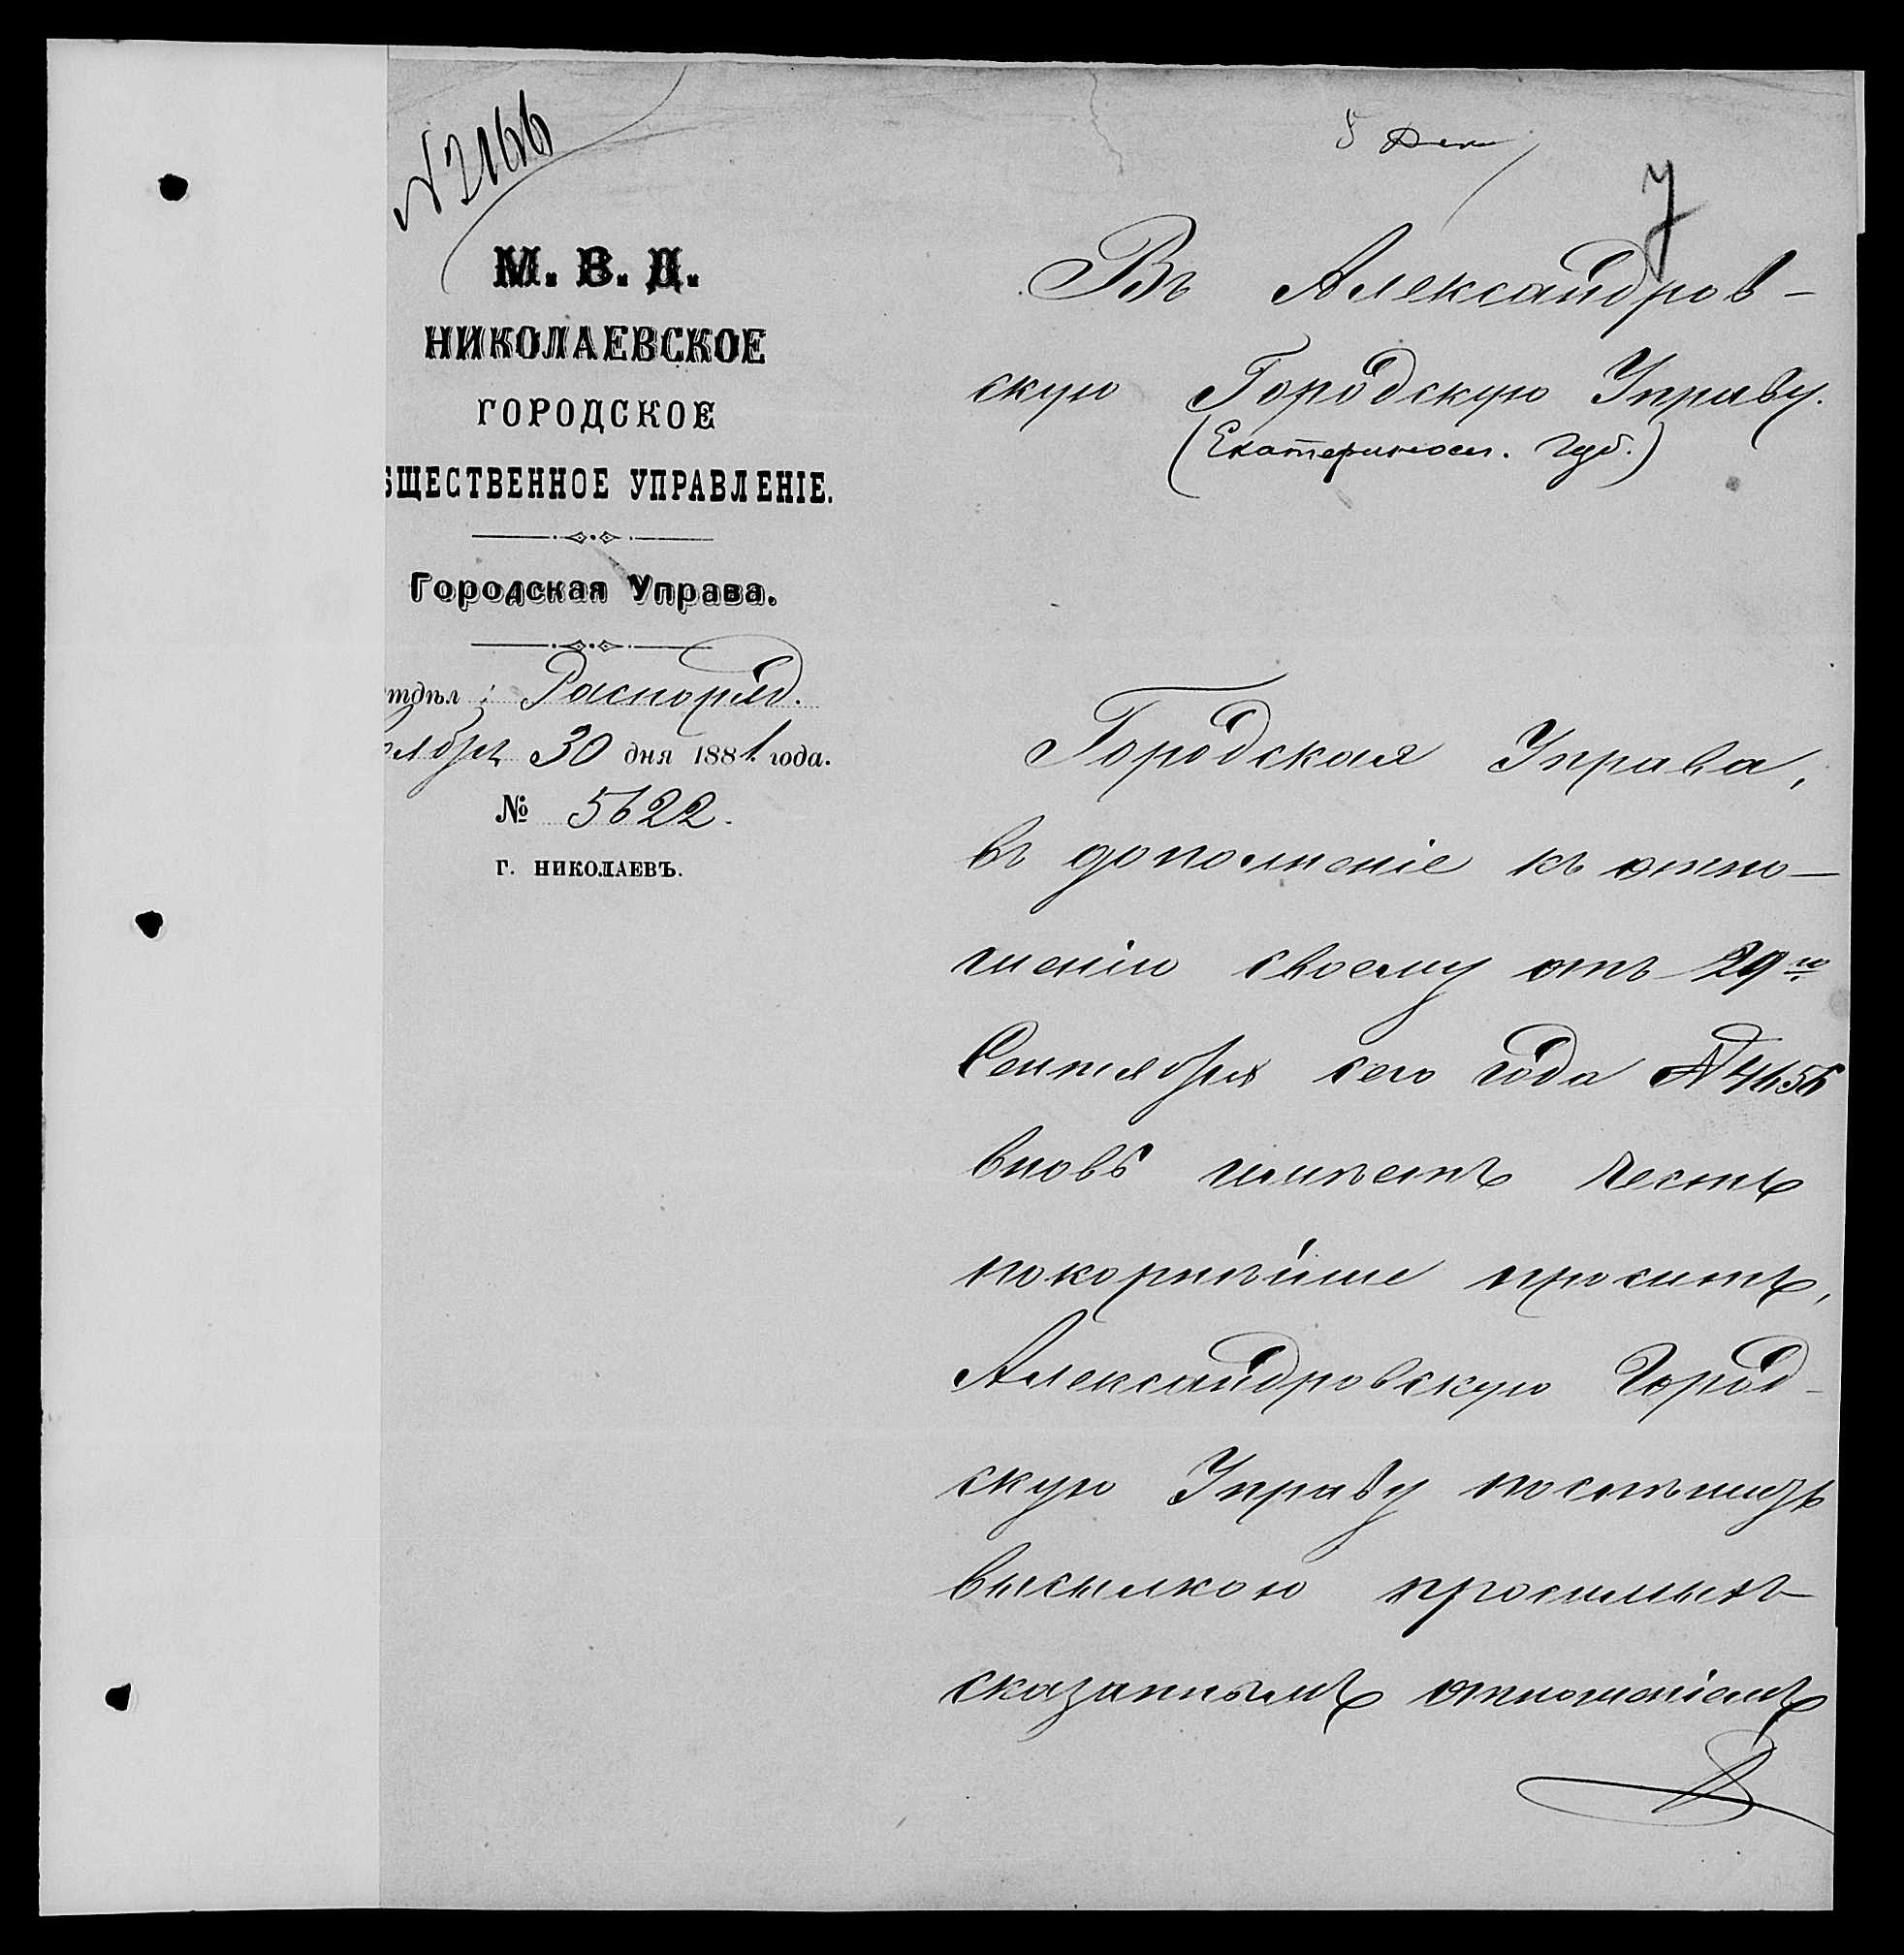 № 2166
5 Дек
7
М. В. Д.
НИКОЛАЕВСКОЕ
ГОРОДСКОЕ
БЩЕСТВЕННОЕ УПРАВЛЕНІЕ.
Городская Управа.
тдѣл : Распоряд.
оября 30 дня 1881 года.
№ 5622.
Г. НИКОЛАЕВЪ.
Въ Александров-
скую Городскую Управу.
(Екатеринос. Губ.)
Городская Управа,
въ дополненіе къ отно-
шенію своему отъ 29го
Сентября сего года №4656
вновь имѣетъ честь
покорнѣйше просить,
Александровскую Город-
скую Управу поспѣшить
высылкою просимыхъ
сказаннымъ отношеніемъ